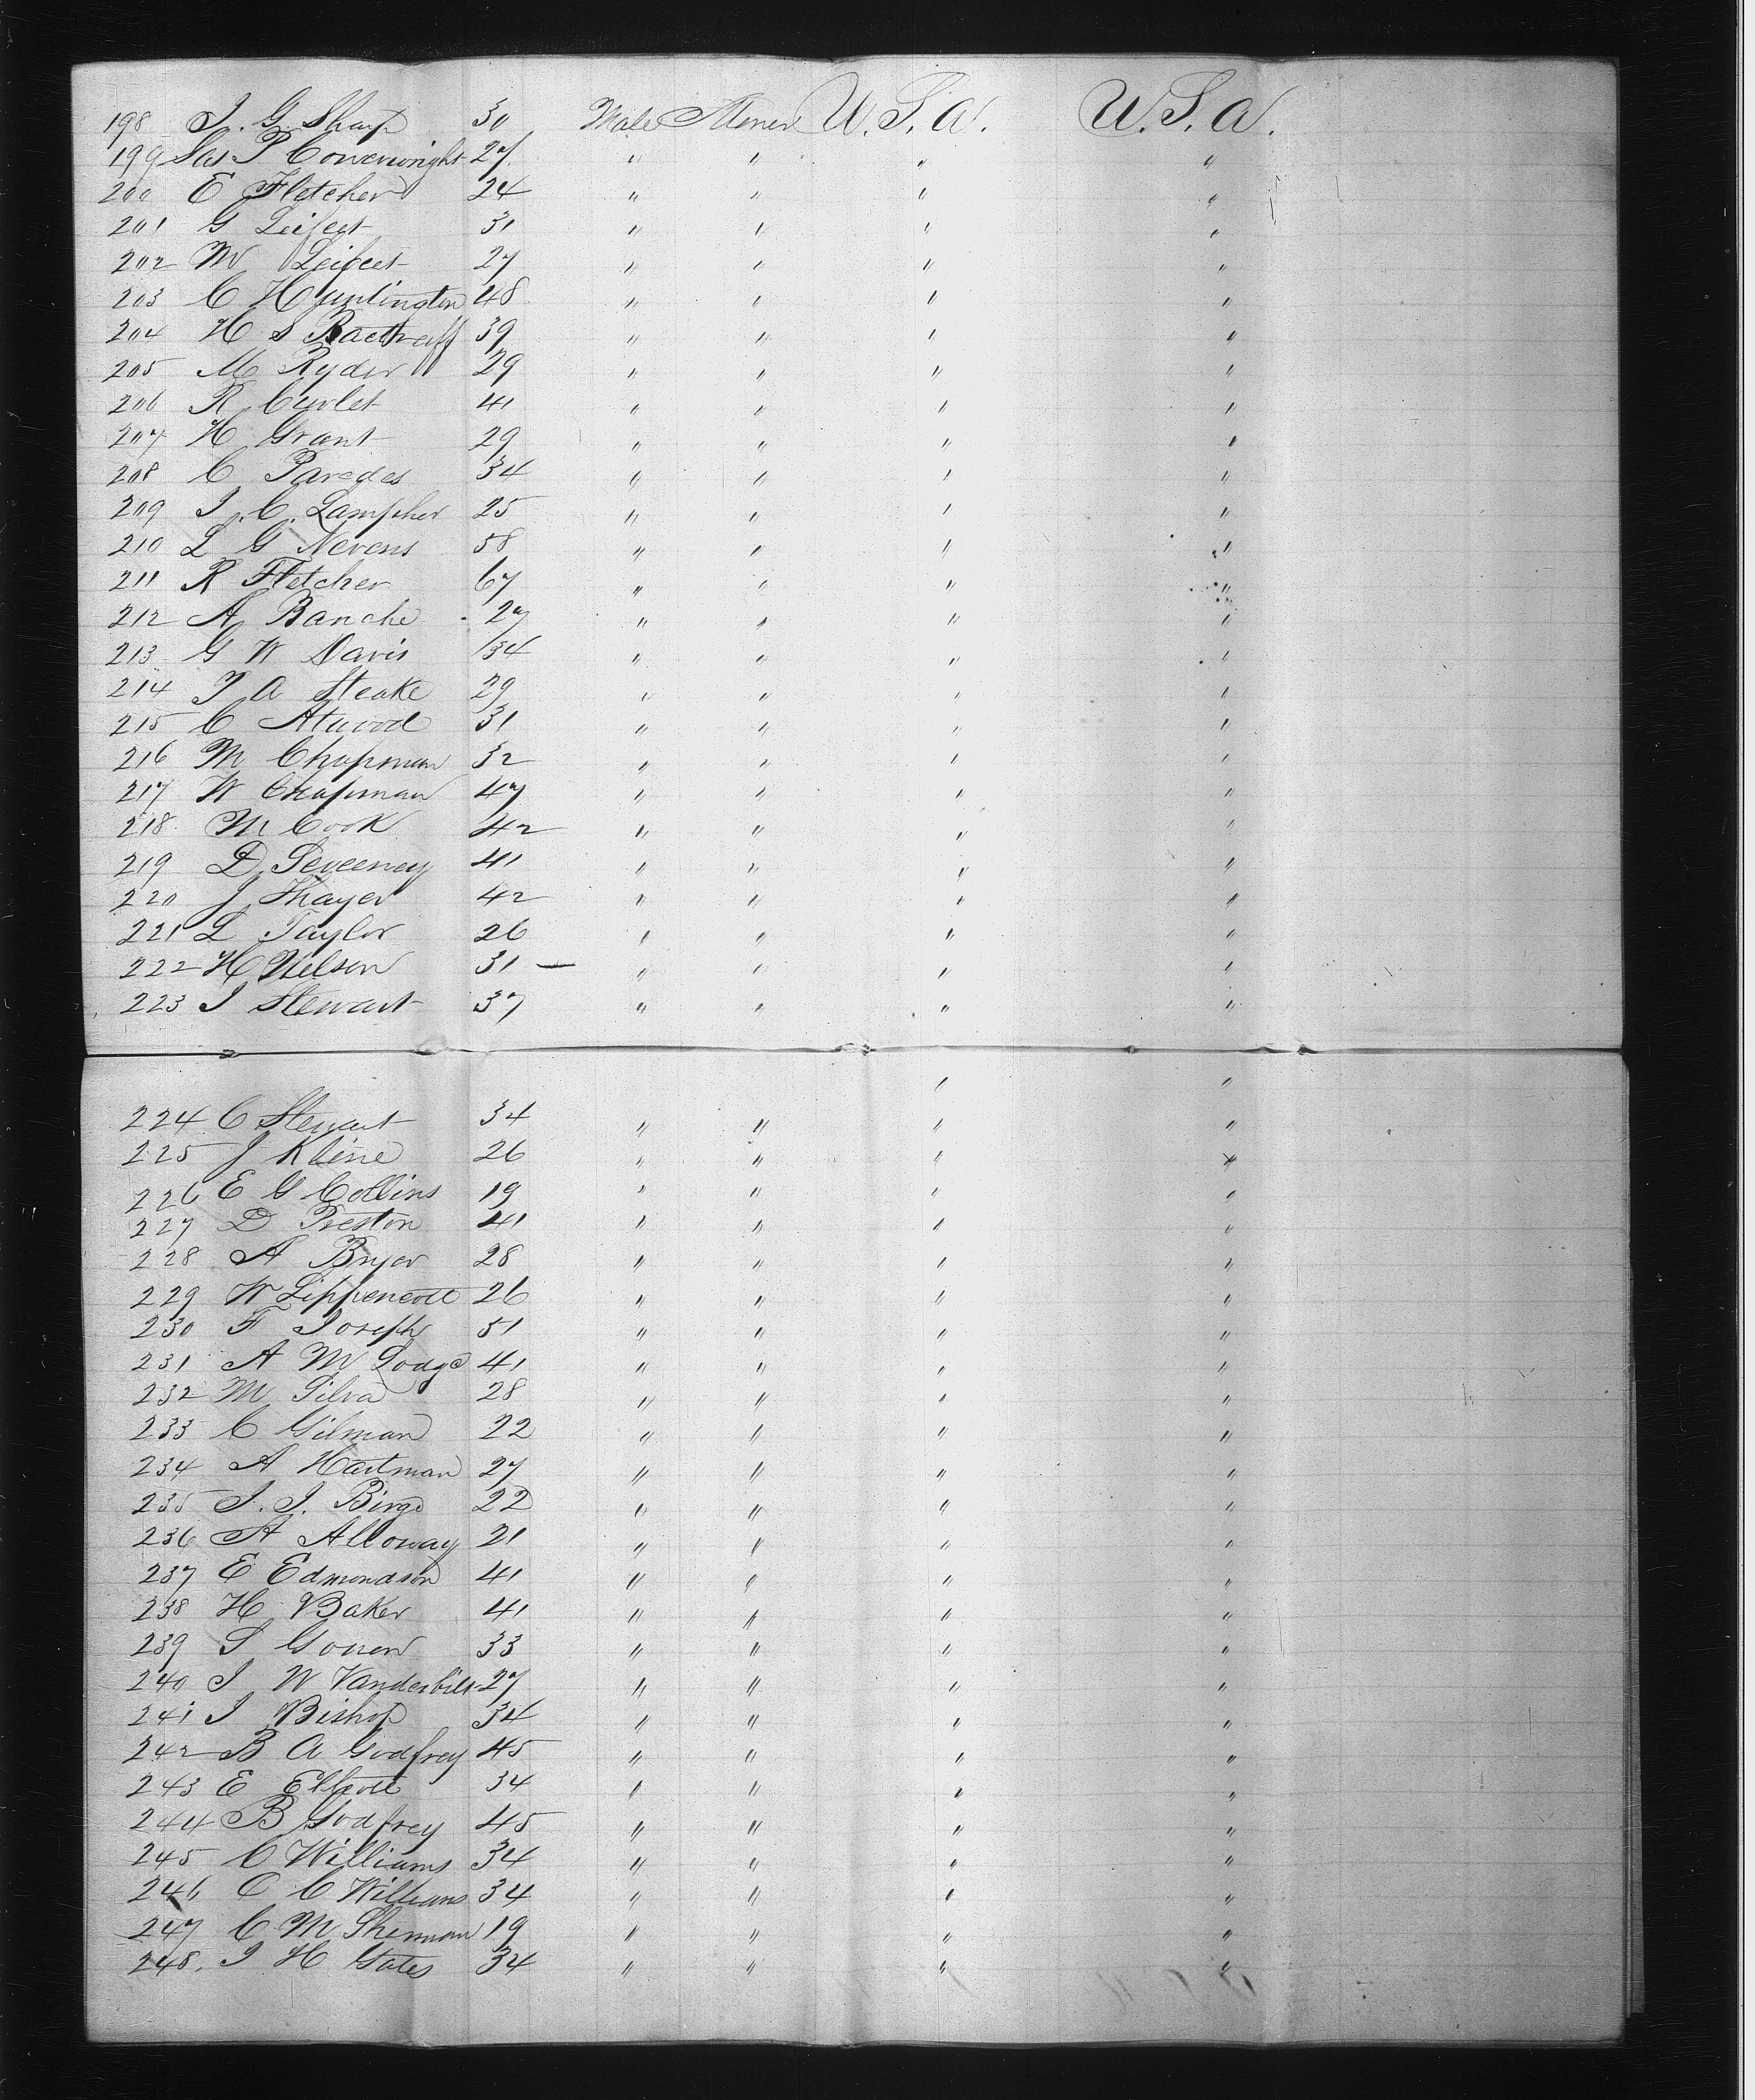 198 J. G. Sharp 30 Male Miner U.S.A. U.S.A.
199 Jas P Conenwright 27 " " " "
200 E Fletcher 24 " " " "
201 G Leifeet 31 " " " "
202 M Leifeet 27 " " " "
203 C Huntington 48 " " " "
204 H S 39 " " " "
205 M Ryder 29 " " " "
206 R Curlet 41 " " " "
207 H Grant 29 " " " "
208 C Paredes 34 " " " "
209 J. C. Lampher 25 " " " "
210 L G Nevens 58 " " " "
211 R Fletcher 67 " " " "
212 A Banche 27 " " " "
213 G W Davis 34 " " " "
214 J A Steake 29 " " " "
215 C Atwood 31 " " " "
216 M Chapman 32 " " " "
217 W Chapman 47 " " " "
218 M Cook 42 " " " "
219 D Seveeney 41 " " " "
220 J Thayer 42 " " " "
221 L Taylor 26 " " " "
222 H Nelson 31 — " " " "
223 J Stewart 37 " " " "
" "
224 C Stewart 34 " " " "
225 J Kline 26 " " " "
226 E G Collins 19 " " " "
227 D Preston 41 " " " "
228 A Bryer 28 " " " "
229 W Lippencott 26 " " " "
230 F Joseph 51 " " " "
231 A M Lodge 41 " " " "
232 M Silva 28 " " " "
233 C Gilman 22 " " " "
234 A Hartman 27 " " " "
235 J. J. Binge 22 " " " "
236 A Alloway 21 " " " "
237 E Edmondson 41 " " " "
238 H Baker 41 " " " "
239 S Gouen 33 " " " "
240 J W Vanderbilt 27 " " " "
241 J Bishop 34 " " " "
242 B A Godfrey 45 " " " "
243 E Elliott 34 " " " "
244 B Godfrey 45 " " " "
245 C Williams 34 " " " "
246 C C Williams 34 " " " "
247 C M Sherman 19 " " " "
248. J H Gates 34 " " " "